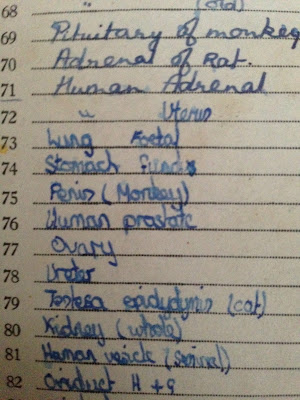 68 " (old)
69 Pituitary of monkey
70 Adrenal of Rat.
71 Human Adrenal
72 " Uterus
73 Lung Foetal
74 Stomach Fundus
75 Penis (Monkey)
76 Human prostate
77 Ovary
78 Ureter
79 Testes epidydymis (cat)
80 Kidney (whole)
81 Human vesicle (seminal)
82 Oviduct H + 9